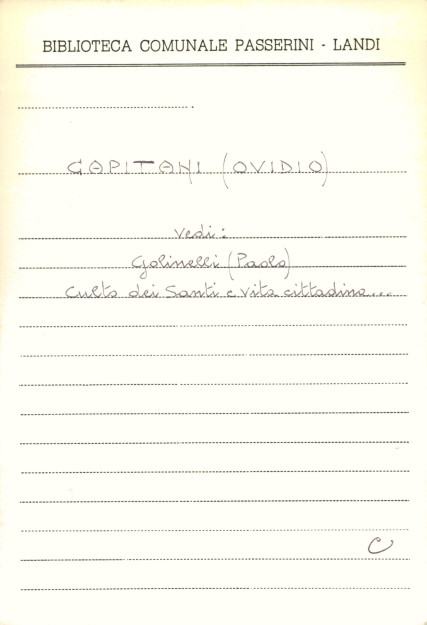 BIBLIOTECA COMUNALE PASSERINI - LANDI
CAPITANI (OVIDIO)
vedi:
Golinelli (Paolo)
Culto dei Santi e vita cittadina...
C